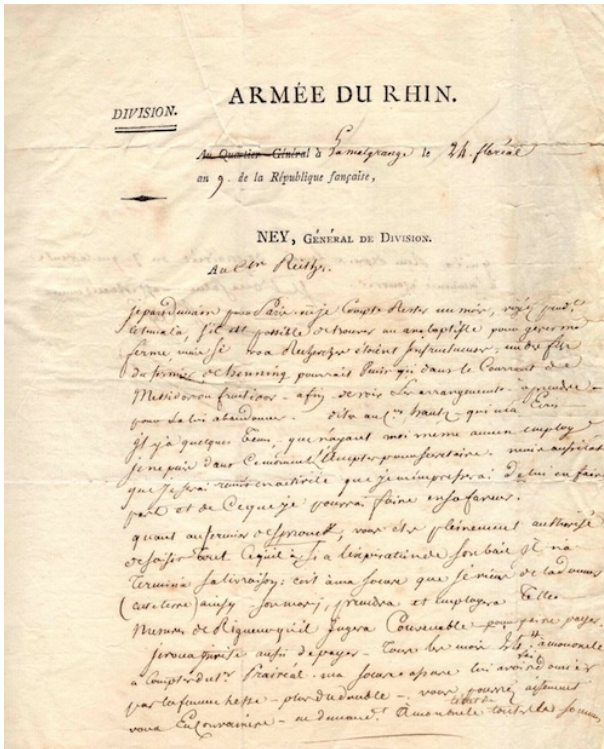 ARMÉE DU RHIN.
DIVISION.
Au Quartier-Général à Lamalgrange le 24. floréal
an 9. de la République française,
NEY, GÉNÉRAL DE DIVISION.
Au
je pars demain pour Paris où je Compte Rester un mois, voyez pendt
s'il est possible de trouver un anabaptiste pour gerer ma
ferme, mais si vos Recherches étoient infructueuses, un des fils
du fermier de henning pourrait venir ici dans le Courrant de
Messidor ou fructidor - afin de voir les arrangements à prendre
pour la lui abandonner. dites au Cen hautz qui m'a Ecris
il y a quelques Tems, que n'ayant moi meme aucun employ
je ne puis dans ce moment l'accepter pour secretaire. mais aussitôt
que je serai remis en activité que je m'empresserai de lui en faire
part et de Ce que je pourrai faire en sa faveur.
quant au fermier de vous ete pleinement authorisé
de saisir Tout Ce qu'il a Si à l'expiration de son bail Il n'a
Terminé sa livraison; c'est à ma soeur que je viens de la donner
(cette terre) ainsy son mari prendra et Employera Telles
Mesures de Rigueur qu'il Jugera Convenable pour se faire payer.
je vous aussi de payer - Tous les mois à
à Compter du 1er Prairéal. ma soeur lui avoir donné
par la femme hesse - plus du double - vous pouvez aisement
vous En Convaincre - en demandt toute la somme